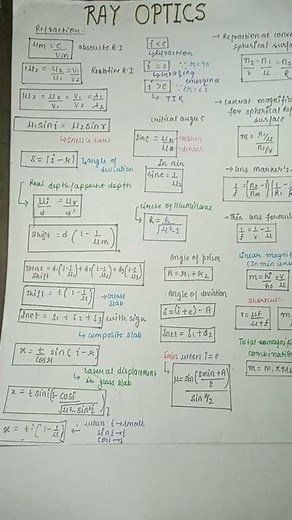 RAY OPTICS
Refraction:-
μm = c/Vm absolute R.I
1μ2 = μ2/μ1 = V1/V2 Reative R.I
1μ2 = μ2/μ1 = V1/V2 = λ1/λ2
μ1 sin i = μ2 sin r
↳ Snell's law
δ = |i - r| angle of deviation
Real depth/apparent depth
μi/d = μr/d'
Shift = d (1 - 1/μm)
shift = d1(1-1/μ1) + d2(1-1/μ2) + d3(1-1/μ3)
Shift = t(1-1/μ)
↳ glass slab
Snet = S1 + S2 + S3 with sign
↳ composite slab
x = t/cos r sin(i-r)
Lateral displacement in glass slab
x = t sin i [1 - cos i/√μ²-sin²i]
x = t i [1 - 1/μ] ← when i → small
sin i → i
cos i → 1
i < c
↳ refraction
i = c ∵ r = 90
↳ grazing emergence
i > c
↳ TIR
critical angle C
sin c = μR/μD
In air
sin c = 1/μ
circle of illuminance
R = h/√μ²-1
Angle of prism
A = r1 + r2
Angle of deviation
δ = (i+e) - A
δnet = δ1 + δ2
δmin when i = e
μ = sin(δmin + A/2)/sin A/2
→ Refraction at
spherical
n2 - n1
→ lateral
for spherical
surface
m =
→ lens maker's
→ Thin lens formula
1/f = 1/v - 1/u
Linear
(in thin
shortcut
Total
combination